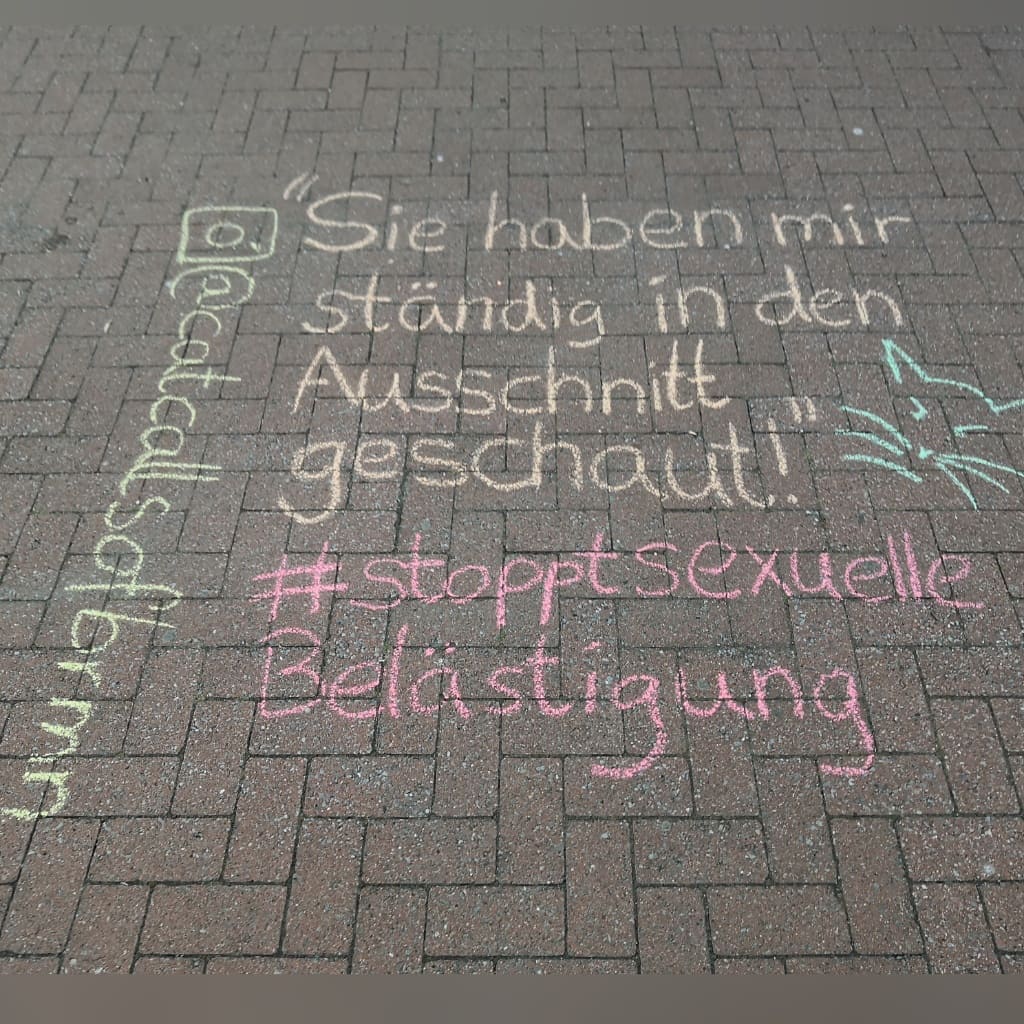 "Sie haben mir
ständig in den
Ausschnitt
geschaut!"
#stoppt sexuelle
Belästigung
@catcallsofbrmn